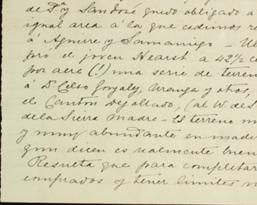 de Fco y San José quedo obligado a
igual area á la que cedimos
á Aguirre y Samaniego –
el joven Hearst á 42½ c
por acre (!) una serie de terren
á D. Celso Gonzalez, Uranga y otros,
el Canton Degollado, (al W. de S
de la Sierra Madre – El terreno
y muy abundante en made
que dicen es realmente buen
Resulta que para completar
comprados y tener limites